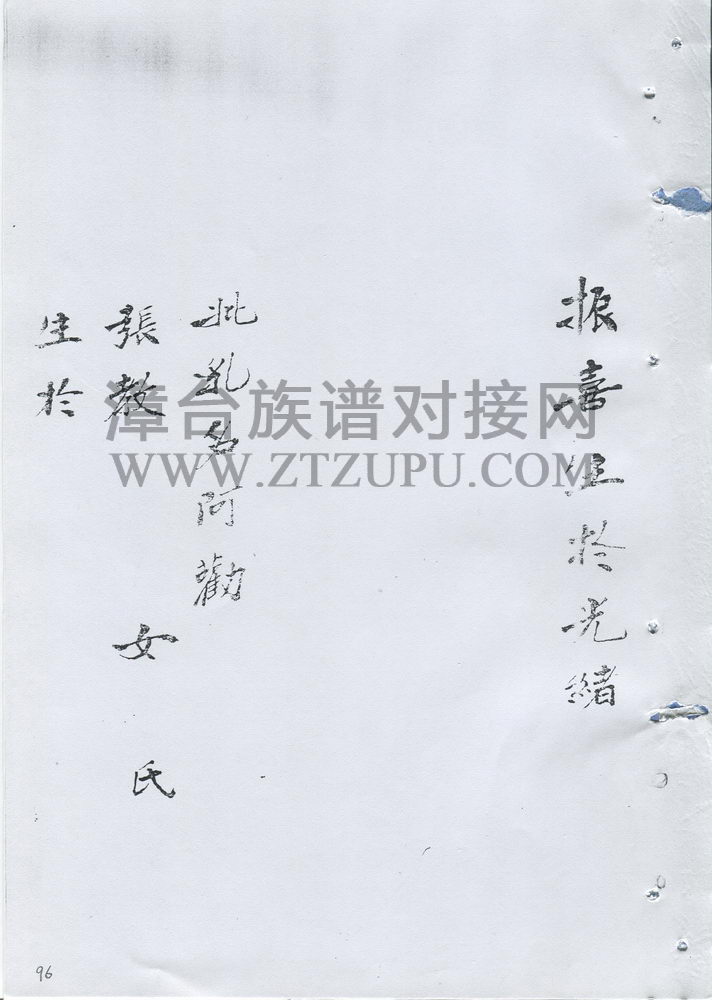 振喜生於光緒
妣乳名阿勸
張教 女 氏
生於
漳台族谱对接网
WWW.ZTZUPU.COM
96